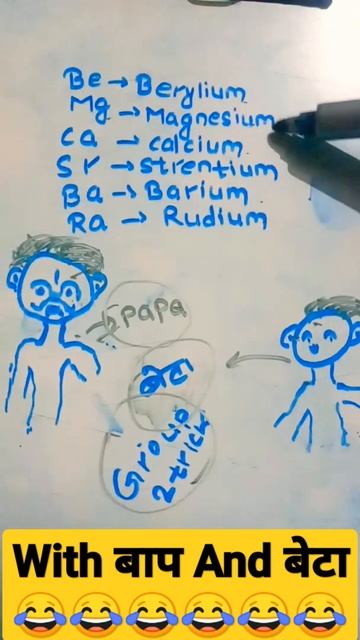 Be → Berylium
Mg → Magnesium
Ca → calcium
Sr → strentium
Ba → Barium
Ra → Rudium
papa
बेटा
Group
2 trick
With बाप And बेटा
😂😂😂😂😂😂